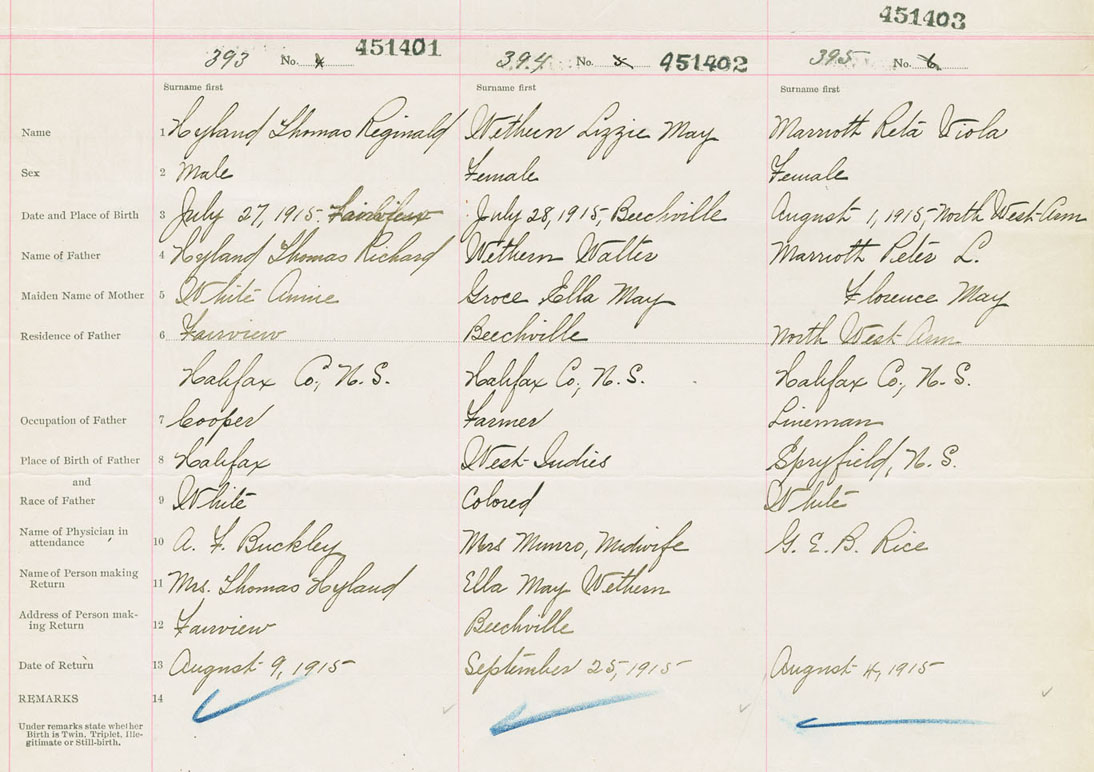 451403
393 No. 4 451401 394 No. 5 451402 395 No. 6
Surname first Surname first Surname first
Name 1 Hyland Thomas Reginald Wethern Lizzie May Marriott Reta Viola
Sex 2 Male Female Female
Date and Place of Birth 3 July 27, 1915, July 28, 1915, Beechville August 1, 1915, North West Arm
Name of Father 4 Hyland Thomas Richard Wethern Walter Marriott Peter L.
Maiden Name of Mother 5 White Annie Groce Ella May Florence May
Residence of Father 6 Fairview Beechville North West Arm
Halifax Co., N.S. Halifax Co., N.S. Halifax Co., N.S.
Occupation of Father 7 Cooper Farmer Lineman
Place of Birth of Father 8 Halifax West Indies Spryfield, N.S.
and
Race of Father 9 White Colored White
Name of Physician in
attendance 10 A. F. Buckley Mrs Munro, Midwife G. E. B. Rice
Name of Person making
Return 11 Mrs. Thomas Hyland Ella May Wethern
Address of Person mak-
ing Return 12 Fairview Beechville
Date of Return 13 August 9, 1915 September 25, 1915 August 4, 1915
REMARKS 14
Under remarks state whether
Birth is Twin, Triplet, Ille-
gitimate or Still-birth.